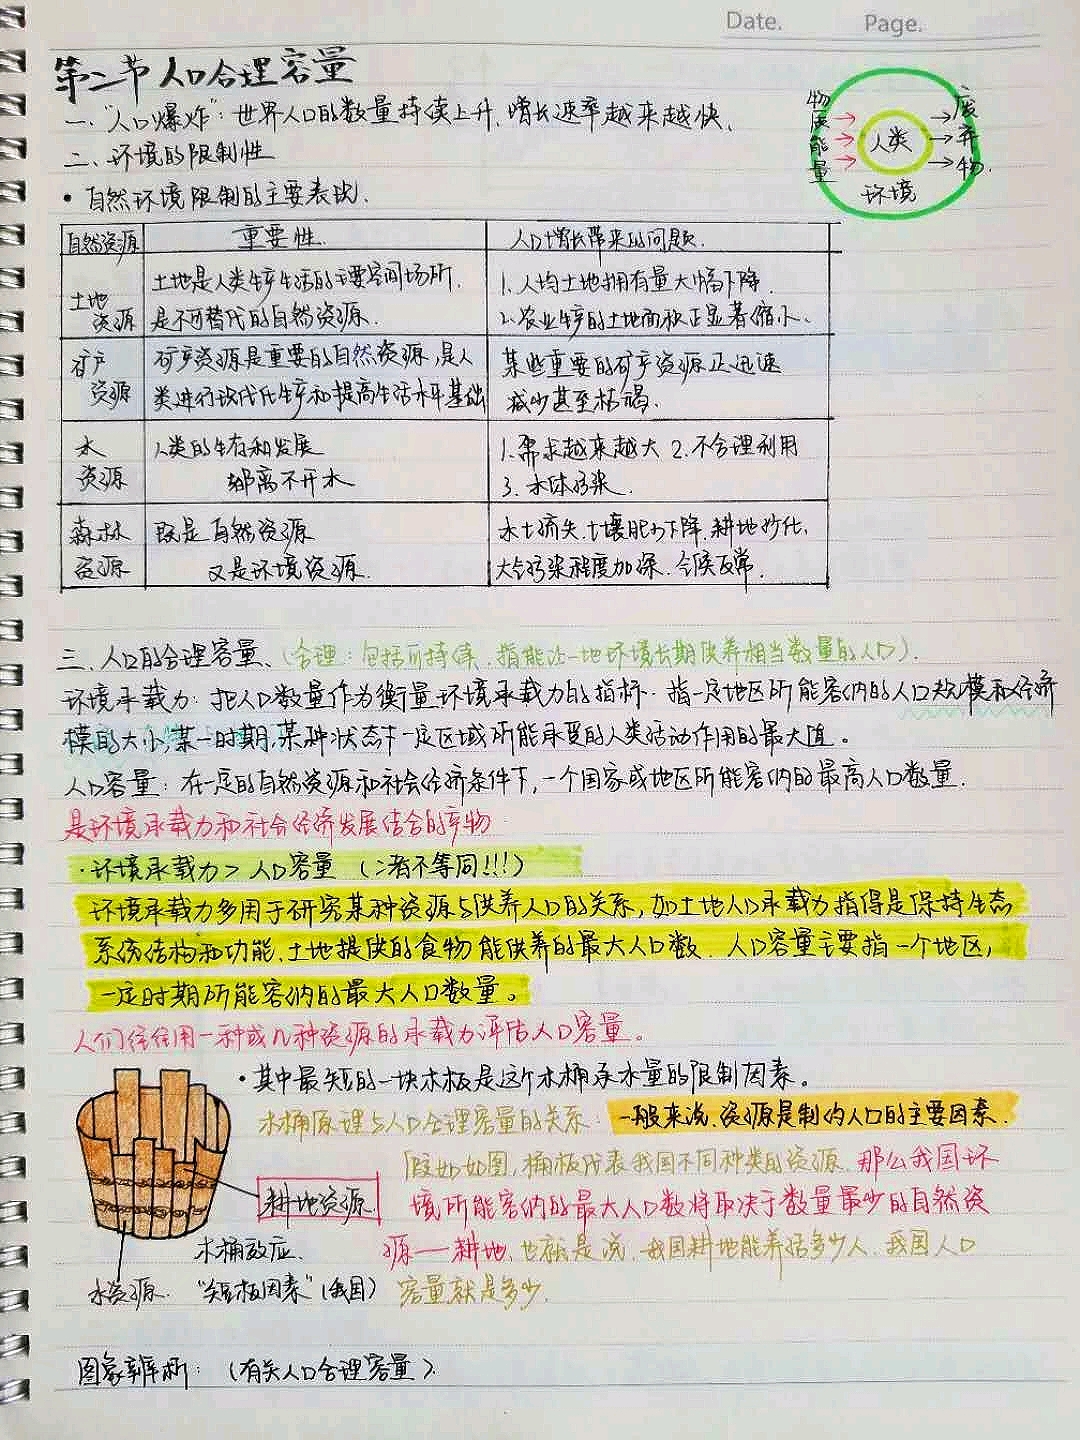 Date. Page.
第二节 人口合理容量
一、"人口爆炸"：世界人口的数量持续上升、增长速率越来越快、
物质能量
人类
环境
废弃物.
二、环境的限制性
• 自然环境限制的主要表现.
自然资源 重要性. 人口增长带来的问题.
土地资源
土地是人类生产生活的主要空间场所.
是不可替代的自然资源.
1.人均土地拥有量大幅下降.
2.农业生产的土地面积正显著缩小、
矿产资源
矿产资源是重要的自然资源,是人
类进行现代化生产和提高生活水平基础
某些重要的矿产资源正迅速
减少甚至枯竭.
水资源
人类的生存和发展
都离不开水
1.需求越来越大 2.不合理利用
3.水体污染.
森林资源
既是自然资源
又是环境资源.
水土流失.土壤肥力下降.耕地沙化、
大气污染程度加深.气候反常.
三、人口的合理容量、(合理：包括可持续、指能让一地环境长期供养相当数量的人口).
环境承载力：把人口数量作为衡量环境承载力的指标. 指一定地区所能容纳的人口规模和经济
模的大小,某一时期,某种状态下一定区域所能承受的人类活动作用的最大值。
人口容量：在一定的自然资源和社会经济条件下,一个国家或地区所能容纳的最高人口数量.
是环境承载力和社会经济发展结合的产物
·环境承载力>人口容量 (二者不等同!!!)
环境承载力多用于研究某种资源与供养人口的关系,如土地人口承载力指得是保持生态
系统结构和功能、土地提供的食物能供养的最大人口数. 人口容量主要指一个地区,
一定时期所能容纳的最大人口数量。
人们往往用一种或几种资源的承载力评估人口容量。
•其中最短的一块木板是这个木桶承水量的限制因素。
木桶原理与人口合理容量的关系：一般来说、资源是制约人口的主要因素.
假如如图,桶板代表我国不同种类的资源.那么我国环
耕地资源. 境所能容纳的最大人口数将取决于数量最少的自然资
木桶效应. 源——耕地.也就是说、我国耕地能养活多少人、我国人口
水资源. "短板因素"(我国) 容量就是多少.
图象辨析：(有关人口合理容量).